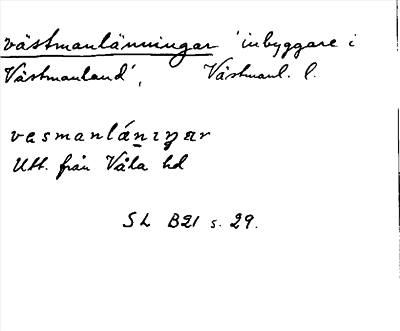 västmanlänningar 'inbyggare i
Västmanland', Västmanl. l.
vesmanlánıŋar
Utt. från Våla hd
SL B21 s. 29.